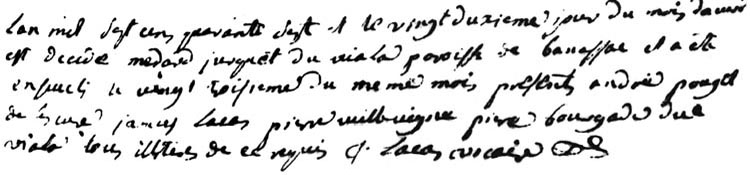 Lan mil sept cens quarante sept et le vingt duxieme jour du mois davril
est decede medard jurquet du viala paroisse de banassac et a ete
enseveli le vingt troisieme du meme mois presents andré pouget
de james Lacas pierre pierre bourgade du
viala tous illitres de ce requis Lacas vicaire